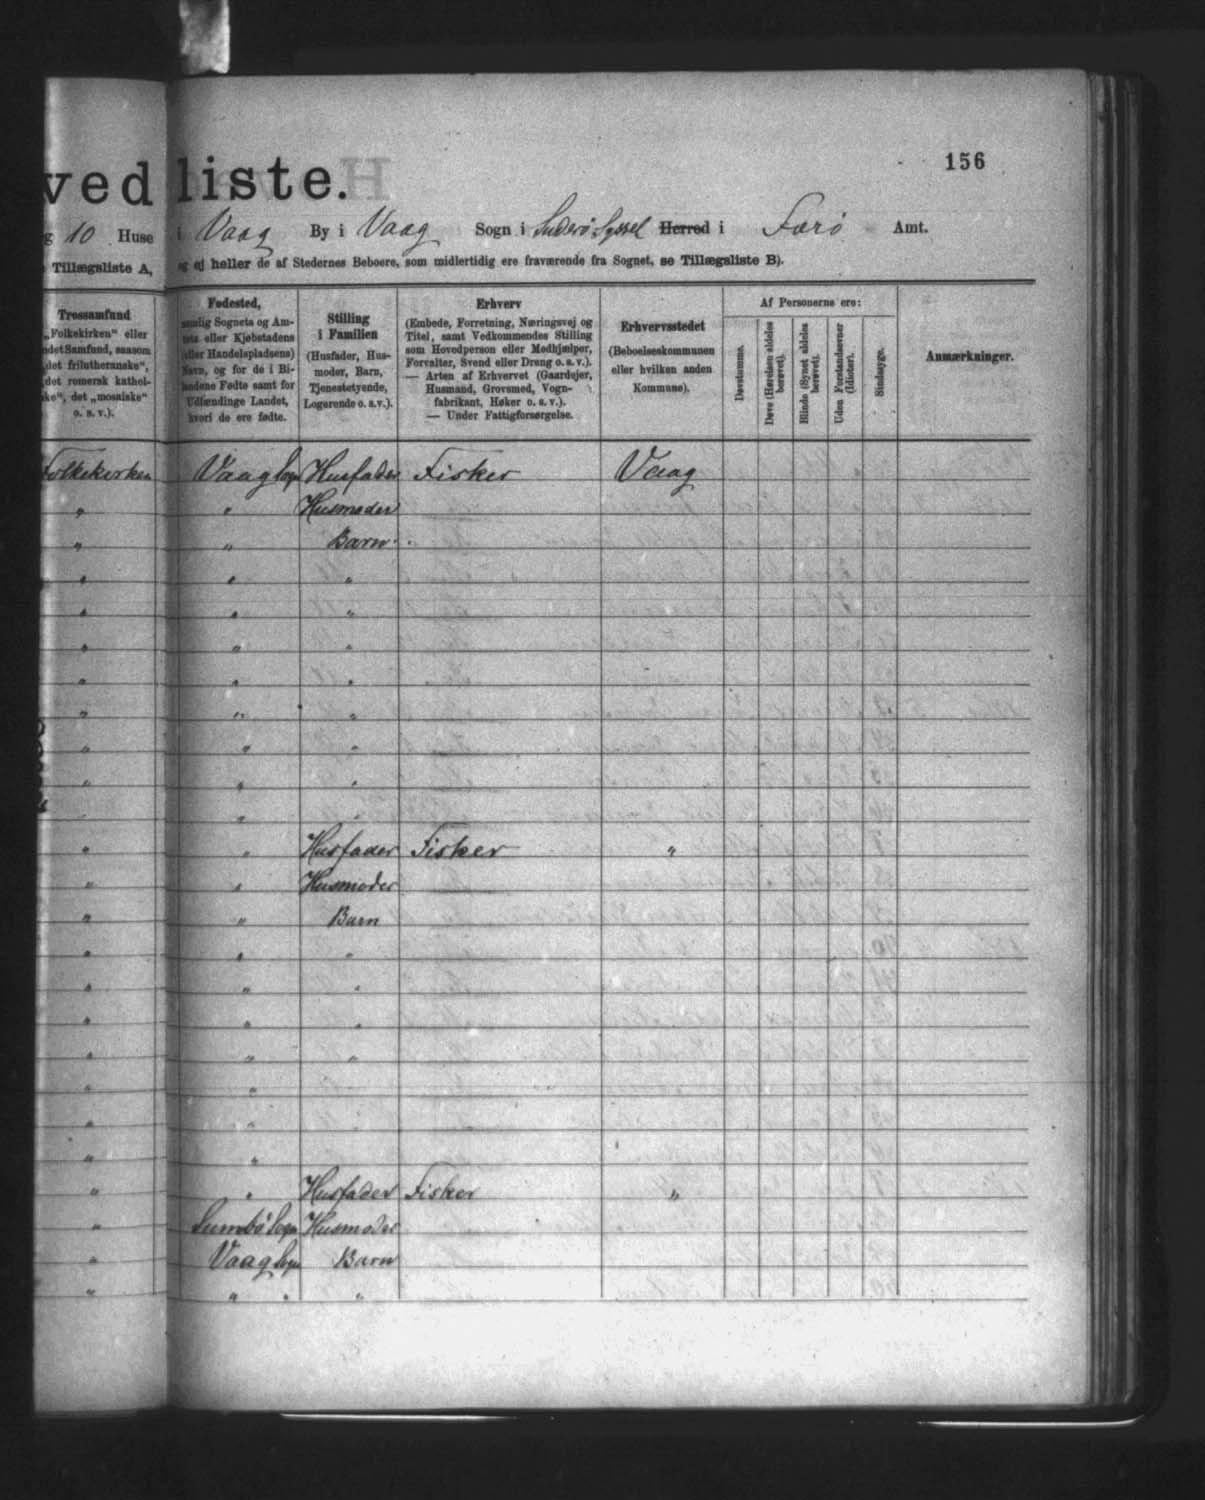 156
ved liste.
g 10 Huse i Vaag By i Vaag Sogn i Suderø Syssel Herred i Færø Amt.
Tillægsliste A, og ej heller de af Stedernes Beboere, som midlertidig ere fraværende fra Sognet, se Tillægsliste B).
Trossamfund
„Folkekirken“ eller
ndet Samfund, saasom
„det frilutheranske“,
„det romersk kathol-
ske“, det „mosaiske“
o. s. v.).
Fødested,
nemlig Sognets og Am-
tets eller Kjøbstadens
(eller Handelspladsens)
Navn, og for de i Bi-
landene Fødte samt for
Udlændinge Landet,
hvori de ere fødte.
Stilling
i Familien
(Husfader, Hus-
moder, Barn,
Tjenestetyende,
Logerende o. s.v.).
Erhverv
(Embede, Forretning, Næringsvej og
Titel, samt Vedkommendes Stilling
som Hovedperson eller Medhjælper,
Forvalter, Svend eller Dreng o. s. v.).
— Arten af Erhvervet (Gaardejer,
Husmand, Grovsmed, Vogn-
fabrikant, Høker o. s. v.).
— Under Fattigforsørgelse.
Erhvervsstedet
(Beboelseskommunen
eller hvilken anden
Kommune).
Af Personerne ere:
Døvstumme.
Døve (Hørelsen aldeles
berøvet).
Blinde (Synet aldeles
berøvet).
Uden Forstandsevner
(Idioter).
Sindssyge.
Anmærkninger.
Folkekirken Vaag Sogn Husfader Fisker Vaag
" " Husmoder
" " Barn
" " "
" " "
" " "
" " "
" " "
" " "
" " "
" " "
" " Husfader Fisker "
" " Husmoder
" " Barn
" " "
" " "
" " "
" " "
" "
" " "
" "
" " Husfader Fisker "
" Sumbø Sogn Husmoder
" Vaag Sogn Barn
" " " "